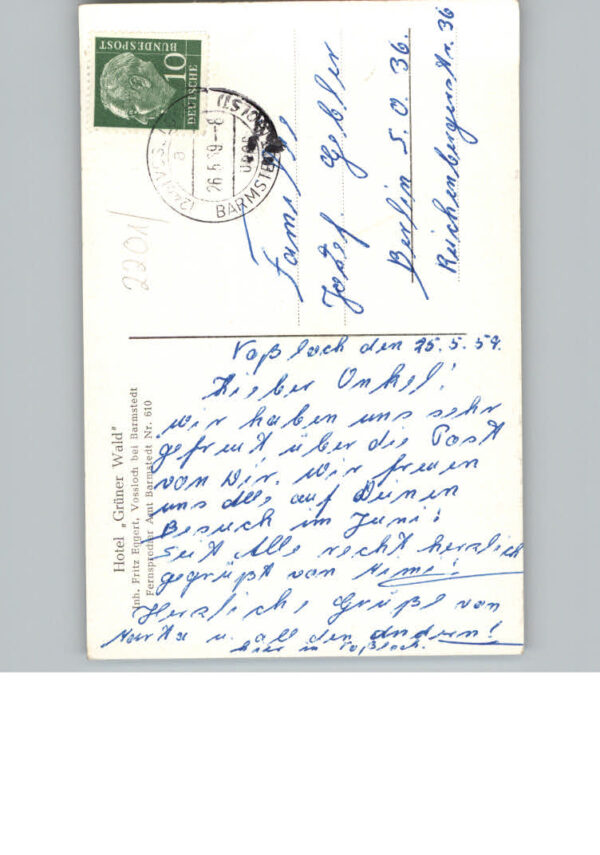 DEUTSCHE
BUNDESPOST
10
26.5.59.-8
BARMSTEDT
(HOLST)
2201/
Familie
Josef Gebler
Berlin S.O. 36.
Reichenbergerstr. 36
Hotel „Grüner Wald"
Inh. Fritz Eggert, Vossloch bei Barmstedt
Fernsprecher Amt Barmstedt Nr. 610
Voßloch den 25.5.59.
Lieber Onkel!
wir haben uns sehr
gefreut über die Post
von Dir. Wir freuen
uns alle auf Deinen
Besuch im Juni!
Seit Alle recht herzlich
gegrüßt von Mimi!
Herzliche Grüße von
u. all den andern!
hier in Voßloch.